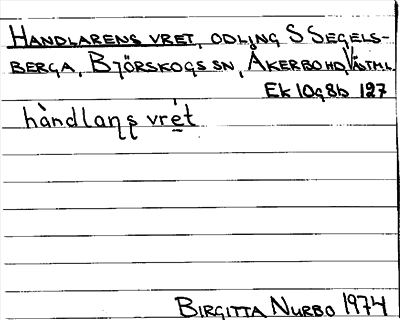 HANDLARENS VRET, ODLING S SEGELS-
BERGA, BJÖRSKOGS SN, ÅKERBO HD, VÄSTML.
Ek 10g8b 127
hàndlaɳʂ vrét
BIRGITTA NURBO 1974